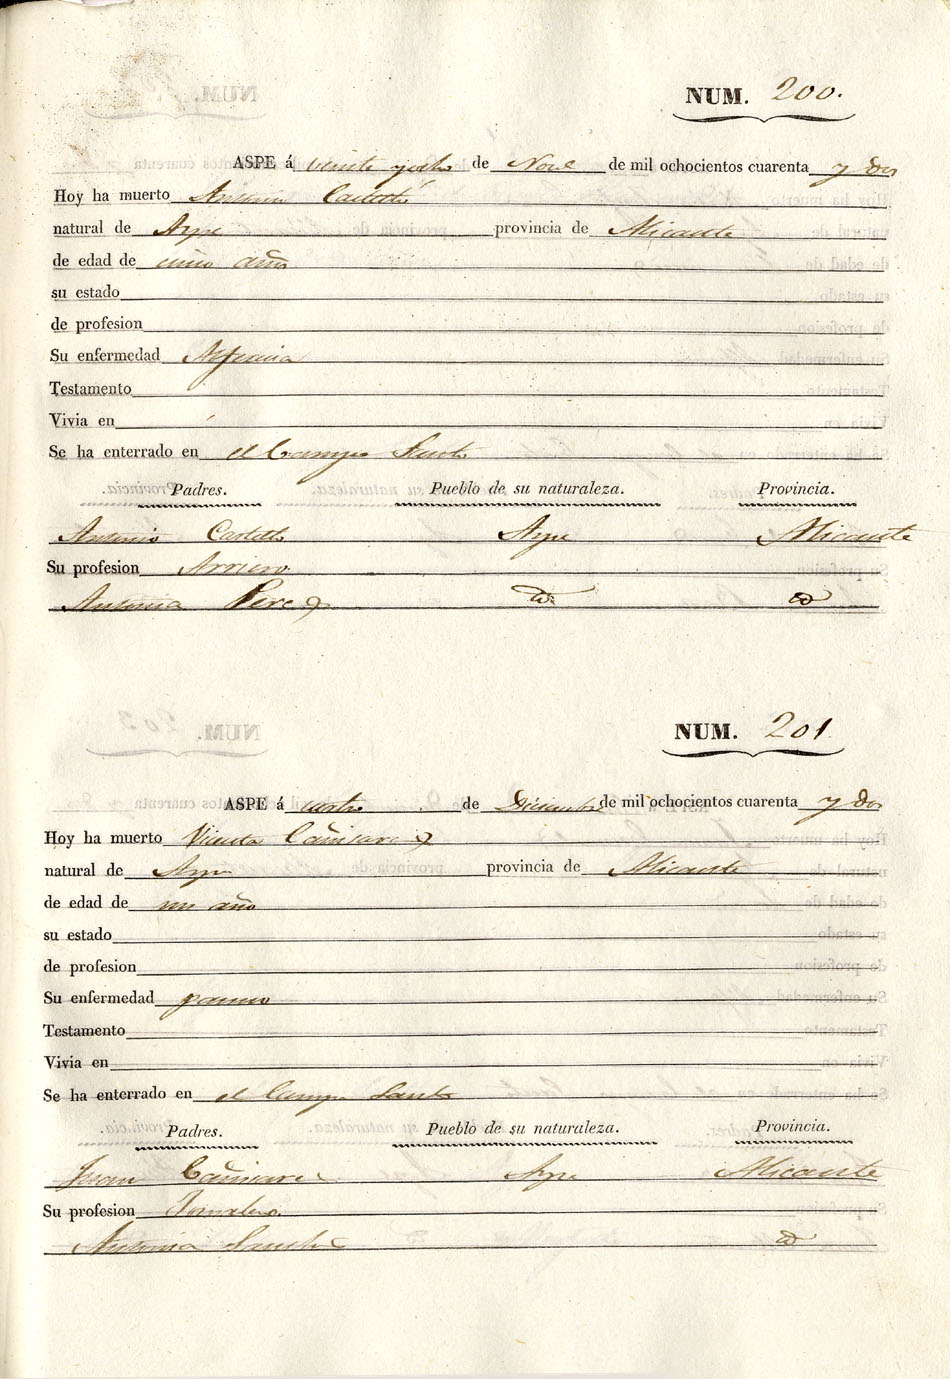 NUM. 200.
ASPE á veinte y ocho de Nove de mil ochocientos cuarenta y dos
Hoy ha muerto Antonia Castelló
natural de Aspe provincia de Alicante
de edad de un año
su estado
de profesion
Su enfermedad Alferecia
Testamento
Vivia en
Se ha enterrado en el Campo Santo
Padres. Pueblo de su naturaleza. Provincia.
Antonio Castelló Aspe Alicante
Su profesion Arriero
Antonia Perez id id
NUM. 201
ASPE á cuatro de Diciembre de mil ochocientos cuarenta y dos
Hoy ha muerto Vicenta Cañizarez
natural de Aspe provincia de Alicante
de edad de un año
su estado
de profesion
Su enfermedad
Testamento
Vivia en
Se ha enterrado en el Campo Santo
Padres. Pueblo de su naturaleza. Provincia.
Juan Cañizarez Aspe Alicante
Su profesion Jornalero
Antonia Sanchez id